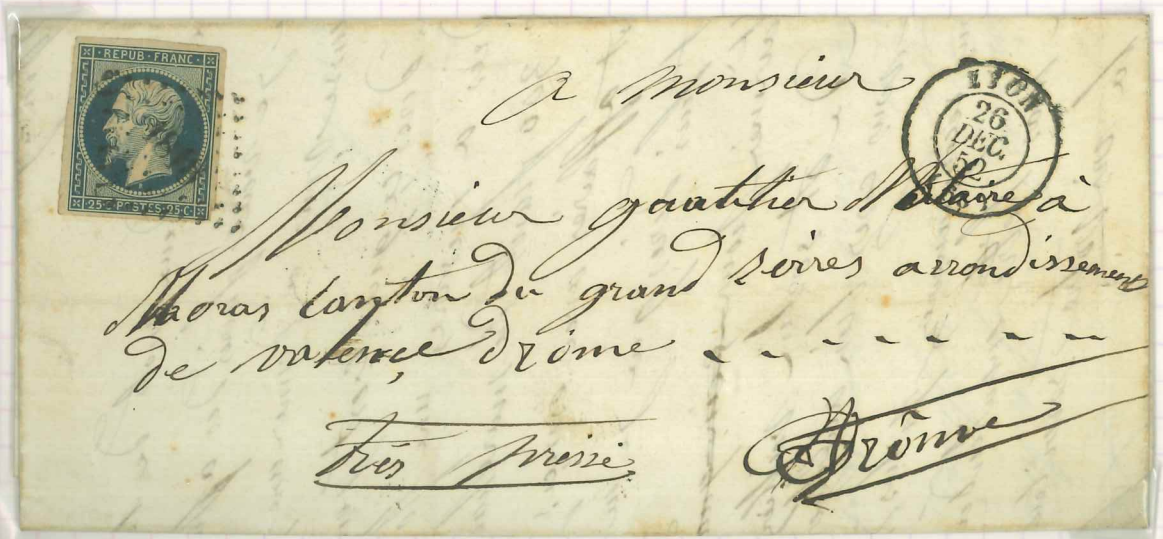 REPUB·FRANC·
25·C·POSTES·25·C·
LYON
26
DEC.
52
a monsieur
Monsieur gautier Maire à
Moras canton du grand serres arrondissement
de valence drome
très pressé
Drôme